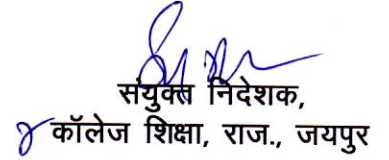 संयुक्त निदेशक,
कॉलेज शिक्षा, राज., जयपुर